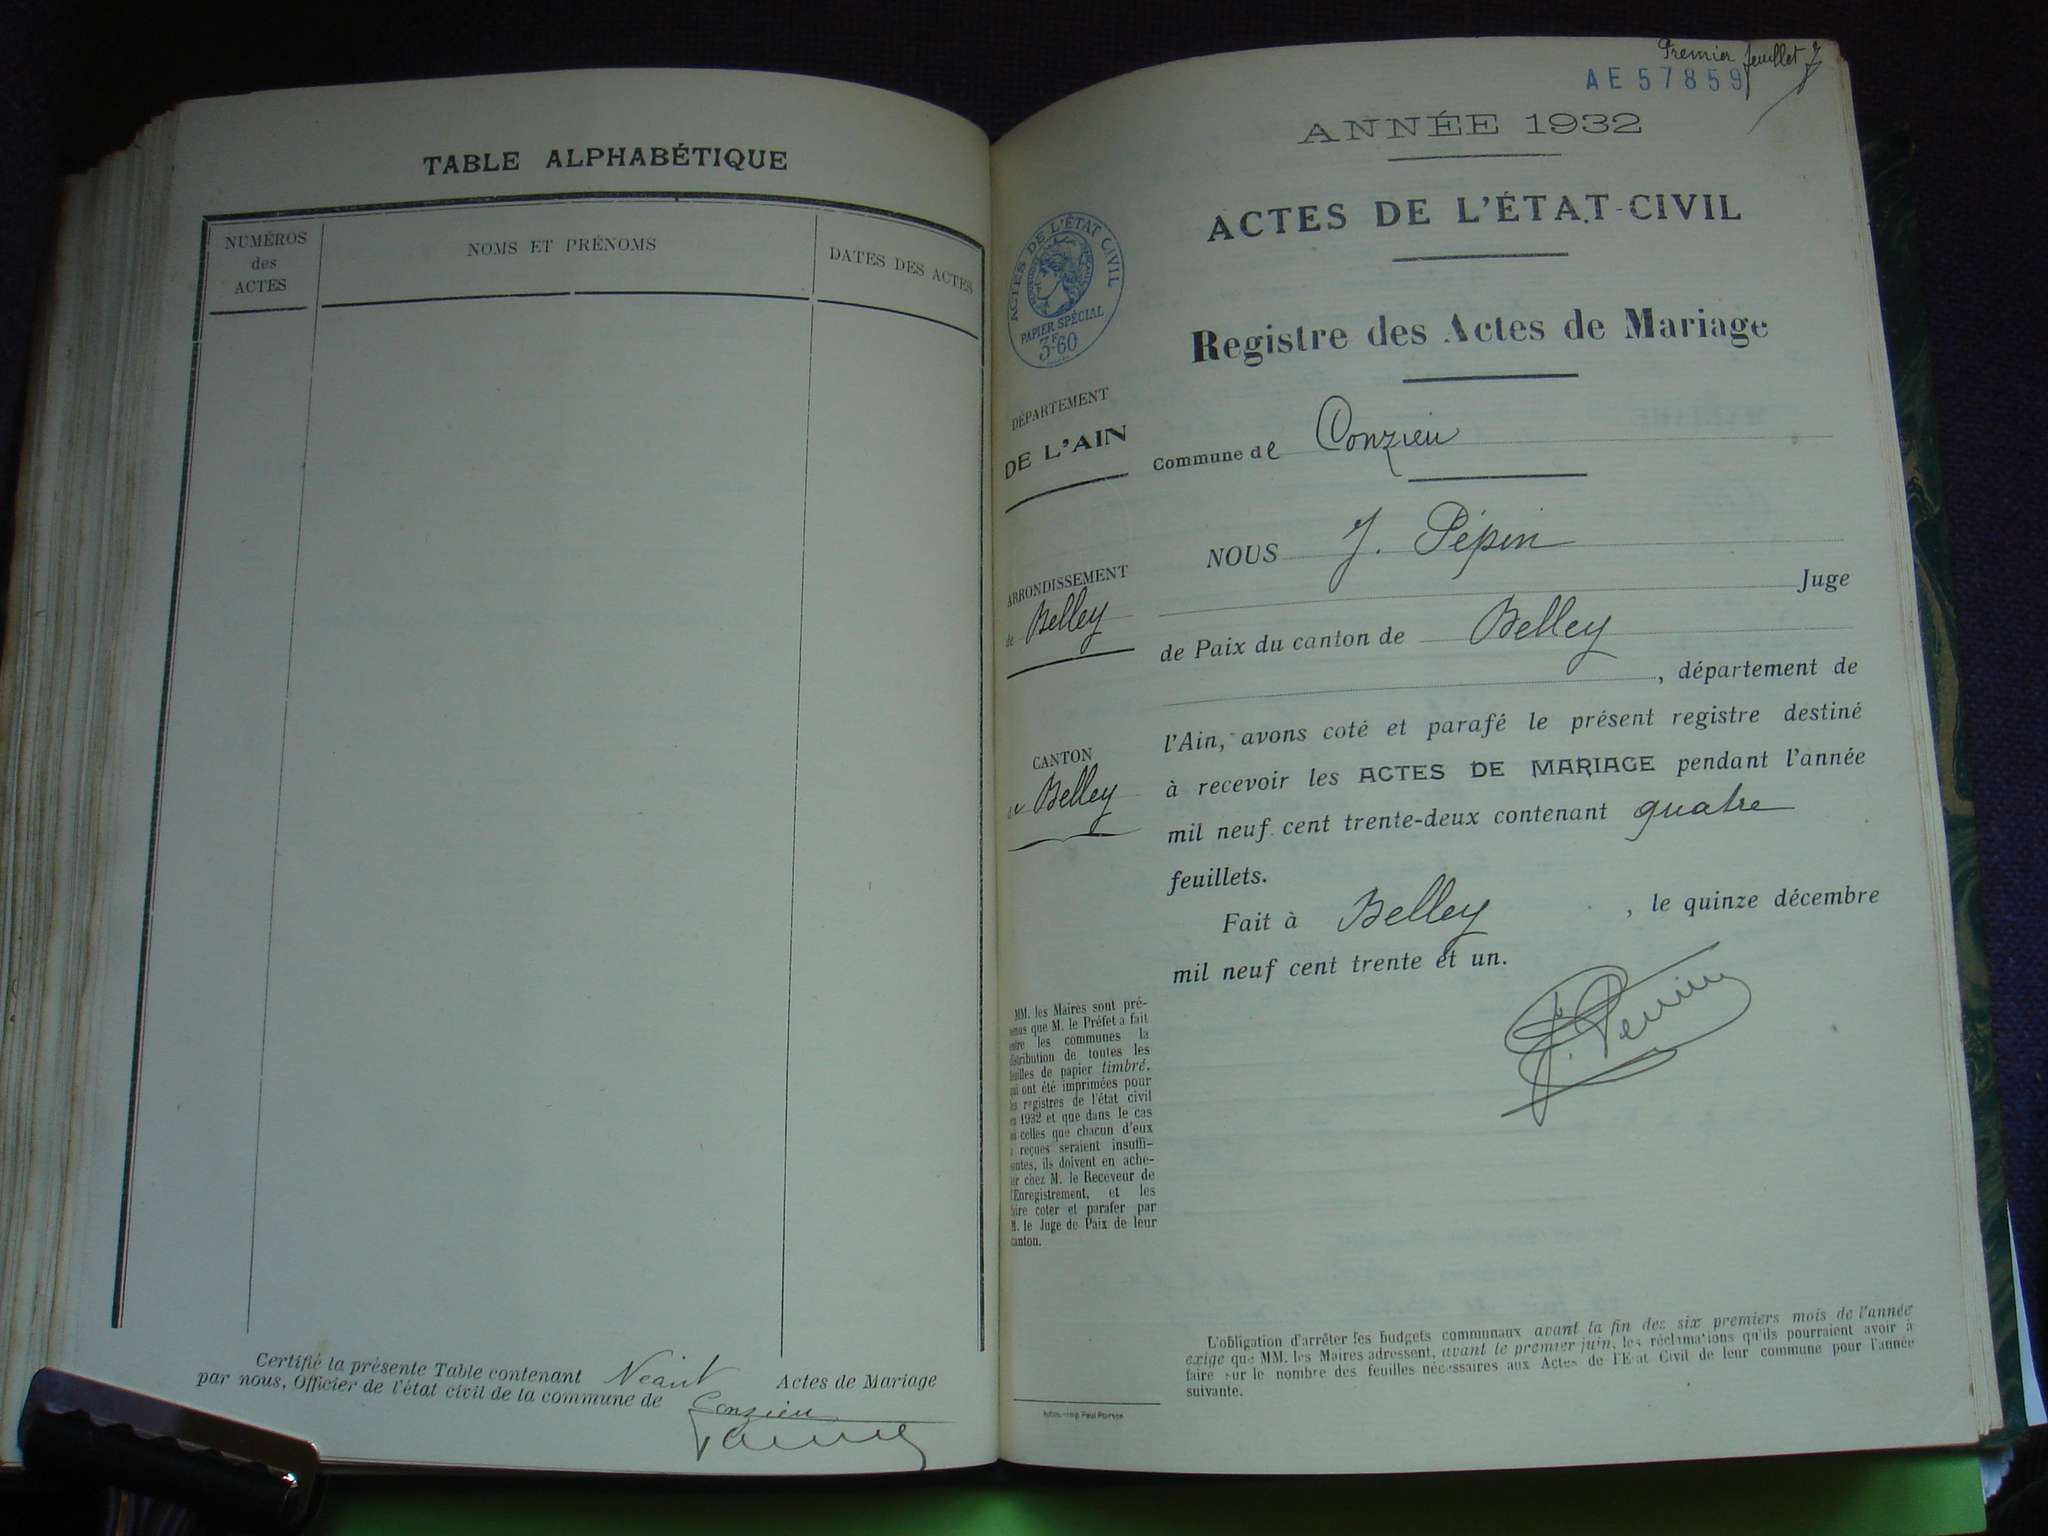 TABLE ALPHABÉTIQUE
NUMÉROS
des
ACTES
NOMS ET PRÉNOMS
DATES DES ACTES
Certifié la présente Table contenant Néant Actes de Mariage
par nous, Officier de l'état civil de la commune de Conzieu
Premier feuillet
AE 57859
ANNÉE 1932
ACTES DE L'ÉTAT-CIVIL
Registre des Actes de Mariage
ACTES DE L'ÉTAT CIVIL
PAPIER SPÉCIAL
3F60
DÉPARTEMENT
DE L'AIN
Commune de Conzieu
NOUS J. Pépin
Juge
ARRONDISSEMENT
de Belley
de Paix du canton de Belley
, département de
l'Ain, avons coté et parafé le présent registre destiné
CANTON
de Belley
à recevoir les ACTES DE MARIAGE pendant l'année
mil neuf cent trente-deux contenant quatre
feuillets.
Fait à Belley, le quinze décembre
mil neuf cent trente et un.
MM. les Maires sont pré-
venus que M. le Préfet a fait
entre les communes la
distribution de toutes les
feuilles de papier timbré,
qui ont été imprimées pour
les registres de l'état civil
en 1932 et que dans le cas
où celles que chacun d'eux
a reçues seraient insuffi-
santes, ils doivent en ache-
ter chez M. le Receveur de
l'Enregistrement, et les
faire coter et parafer par
M. le Juge de Paix de leur
canton.
L'obligation d'arrêter les budgets communaux avant la fin des six premiers mois de l'année
exige que MM. les Maires adressent, avant le premier juin, les réclamations qu'ils pourraient avoir à
faire sur le nombre des feuilles nécessaires aux Actes de l'État Civil de leur commune pour l'année
suivante.